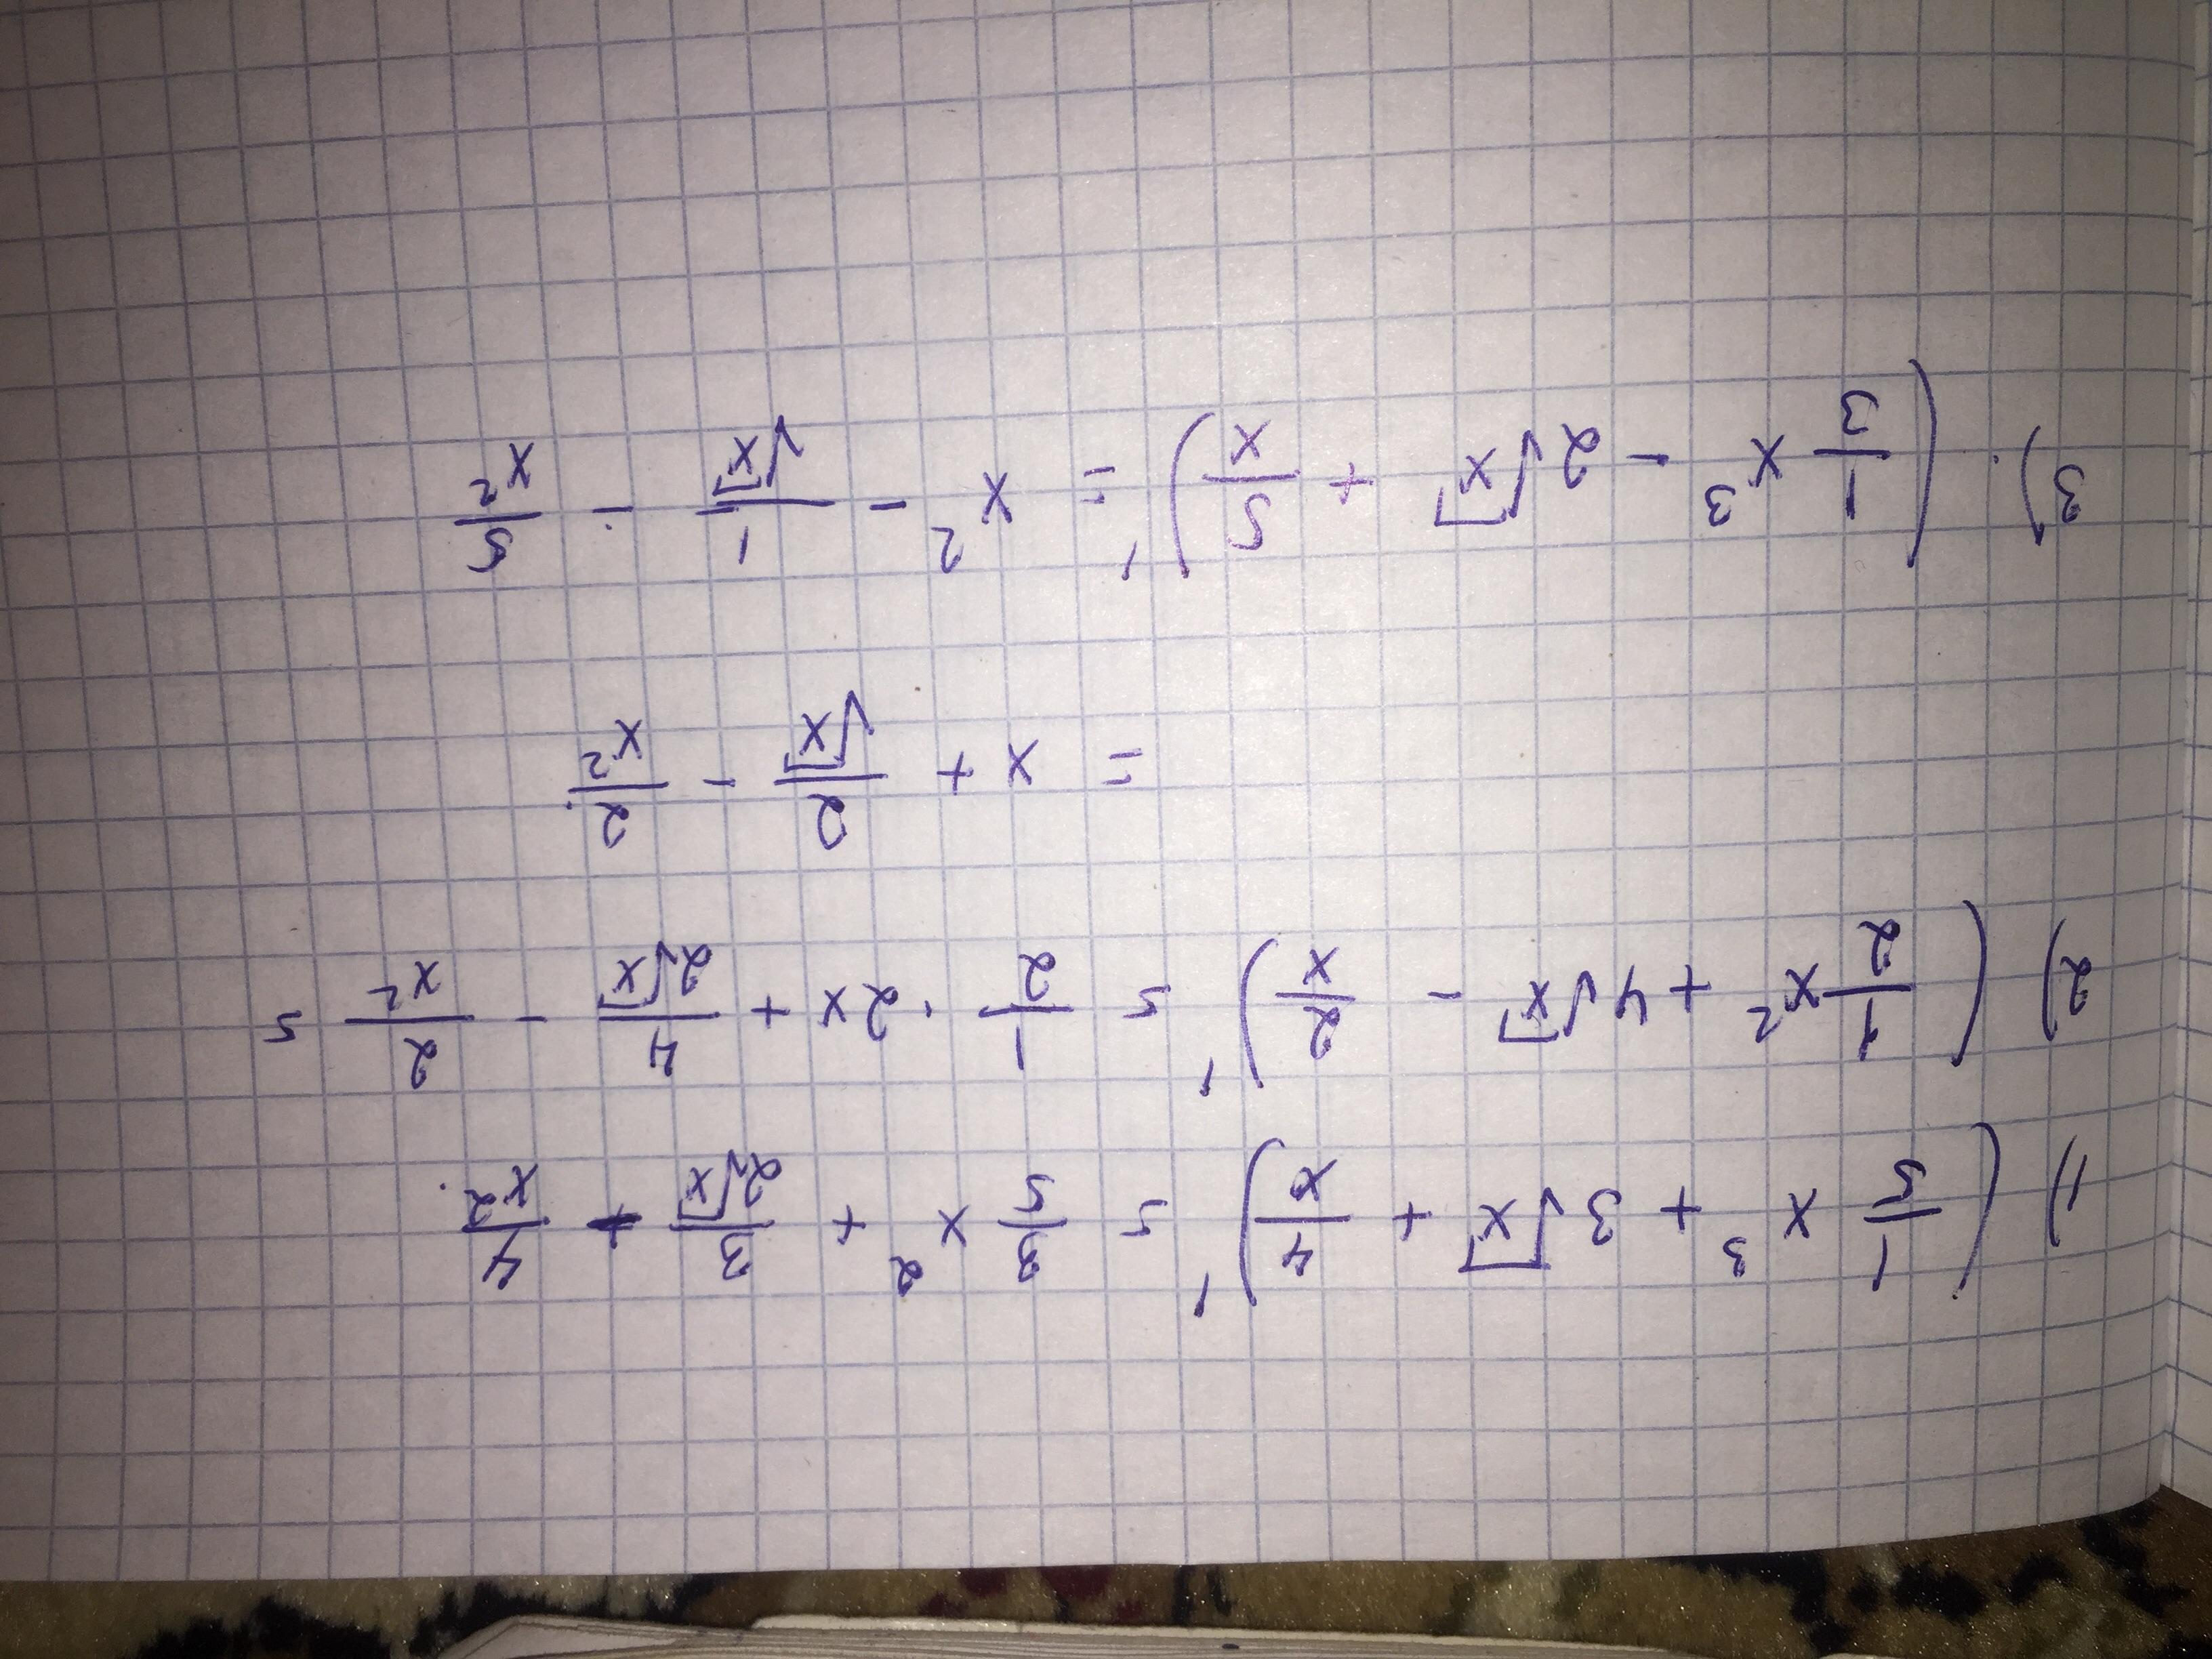 1) (1/5 x³ + 3√x + 4/x)' = 3/5 x² + 3/(2√x) - 4/x².
2) (1/2 x² + 4√x - 2/x)' = 1/2 · 2x + 4/(2√x) - 2/x² =
= x + 2/√x - 2/x²
3) (1/3 x³ - 2√x + 5/x)' = x² - 1/√x - 5/x²